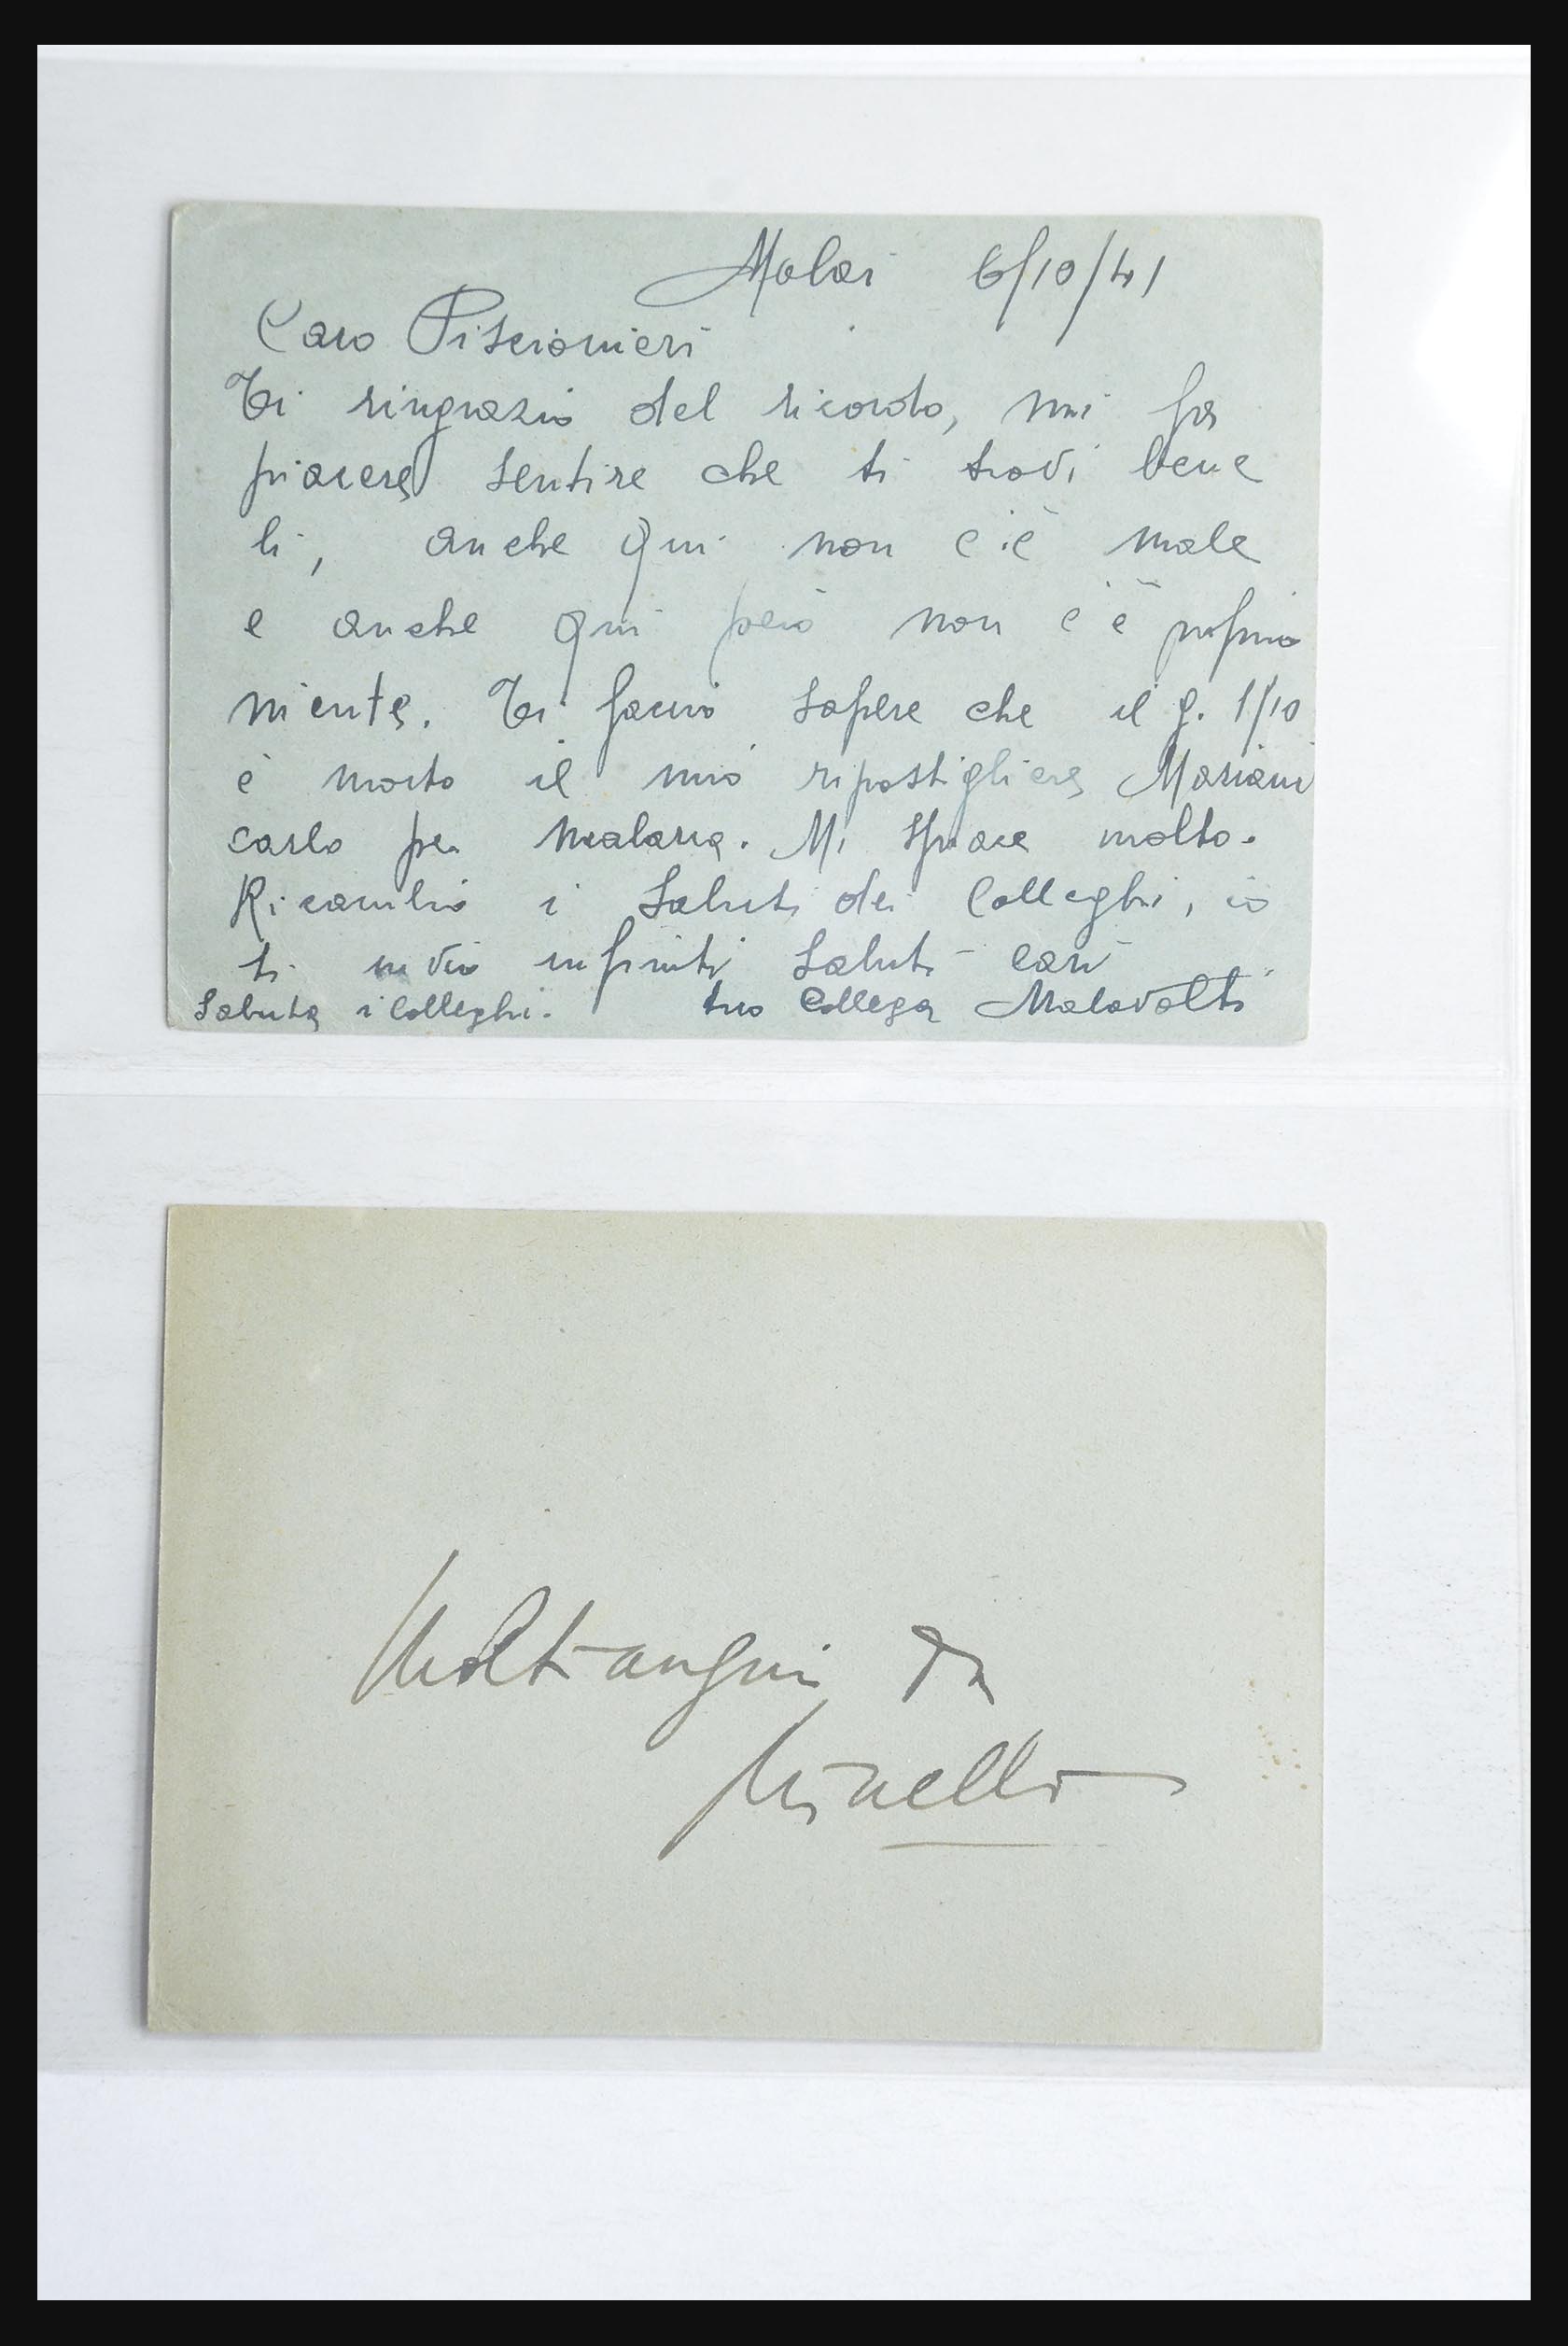 Molai 6/10/41
Caro Piscionieri
Ti ringrazio del ricordo, mi fa
piacere sentire che ti trovi bene
li, anche qui non c'è male
e anche qui però non c'è proprio
niente. Ti faccio sapere che il g. 1/10
è morto il mio ripostigliere Mariani
carlo per malaria. Mi spiace molto.
Ricambio i saluti dei Colleghi, io
ti invio infiniti saluti cari
Saluta i Colleghi. tuo Collega Malavolti
Molti auguri da